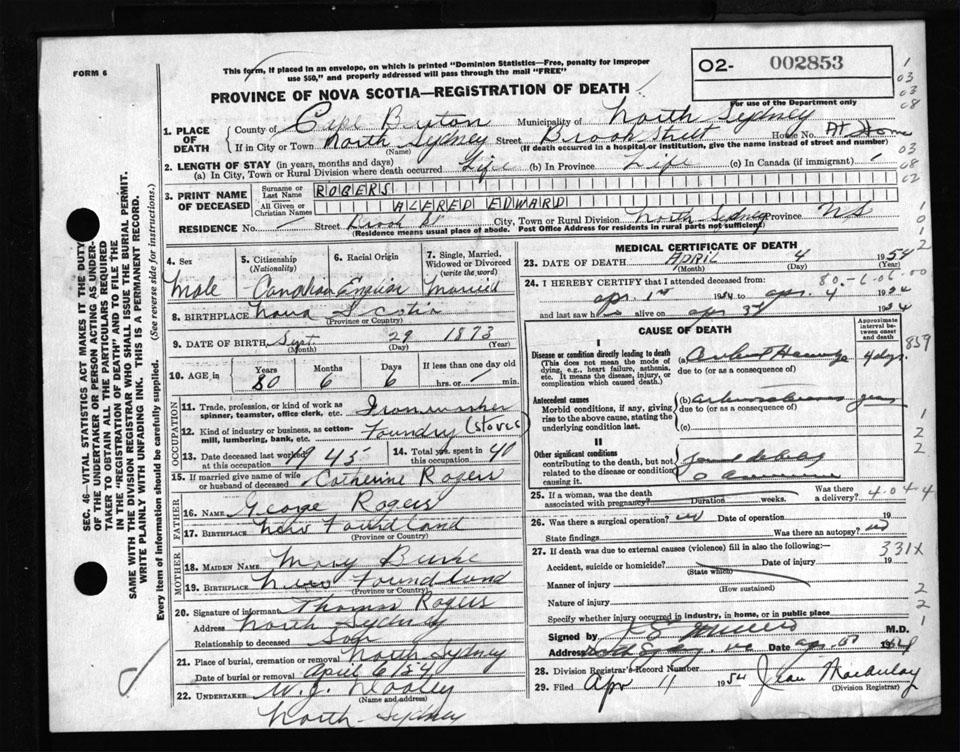 FORM 6
This form, if placed in an envelope, on which is printed "Dominion Statistics—Free, penalty for improper
use $50," and properly addressed will pass through the mail "FREE"
02- 002853
For use of the Department only
PROVINCE OF NOVA SCOTIA—REGISTRATION OF DEATH
1. PLACE OF DEATH
County of Cape Breton Municipality of North Sydney
If in City or Town North Sydney Street Brook Street House No. At Home
(Name) (If death occurred in a hospital or institution, give the name instead of street and number)
2. LENGTH OF STAY (in years, months and days)
(a) In City, Town or Rural Division where death occurred Life (b) In Province Life (c) In Canada (if immigrant)
3. PRINT NAME OF DECEASED
Surname or Last Name ROGERS
All Given or Christian Names ALFRED EDWARD
RESIDENCE No. — Street Brook St City, Town or Rural Division North Sydney Province NS
(Residence means usual place of abode. Post Office Address for residents in rural parts not sufficient)
4. Sex Male
5. Citizenship (Nationality) Canadian
6. Racial Origin
7. Single, Married, Widowed or Divorced (write the word) Married
8. BIRTHPLACE Nova Scotia
(Province or Country)
9. DATE OF BIRTH Sept 29 1873
(Month) (Day) (Year)
10. AGE in Years 80 Months 6 Days 6 If less than one day old hrs. or min.
OCCUPATION
11. Trade, profession, or kind of work as spinner, teamster, office clerk, etc. Ironworker
12. Kind of industry or business, as cotton-mill, lumbering, bank, etc. Foundry (Stoves)
13. Date deceased last worked at this occupation 1945 14. Total yrs. spent in this occupation 40
15. If married give name of wife or husband of deceased Catherine Rogers
FATHER
16. NAME George Rogers
17. BIRTHPLACE New Foundland
(Province or Country)
MOTHER
18. MAIDEN NAME Mary Burke
19. BIRTHPLACE New Foundland
(Province or Country)
20. Signature of informant Thomas Rogers
Address North Sydney
Relationship to deceased Son
21. Place of burial, cremation or removal North Sydney
Date of burial or removal April 6/54
22. UNDERTAKER W. J. Dooley
(Name and address)
North Sydney
MEDICAL CERTIFICATE OF DEATH
23. DATE OF DEATH APRIL 4 1954
(Month) (Day) (Year)
80.-6.06.00
24. I HEREBY CERTIFY that I attended deceased from:
apr. 1st 1954, to apr. 4 1954
and last saw h alive on apr 3rd 1954
CAUSE OF DEATH
Approximate interval between onset and death
I
Disease or condition directly leading to death
(This does not mean the mode of dying, e.g., heart failure, asthenia, etc. It means the disease, injury, or complication which caused death.)
(a) 4 days
due to (or as a consequence of)
Antecedent causes
Morbid conditions, if any, giving rise to the above cause, stating the underlying condition last.
(b) years
due to (or as a consequence of)
(c)
II
Other significant conditions
contributing to the death, but not related to the disease or condition causing it.
25. If a woman, was the death associated with pregnancy? Duration weeks. Was there a delivery? 4-04-4
26. Was there a surgical operation? no Date of operation 19
State findings Was there an autopsy? no
27. If death was due to external causes (violence) fill in also the following:—
331X
Accident, suicide or homicide? Date of injury 19
(State which)
Manner of injury
(How sustained)
Nature of injury
Specify whether injury occurred in industry, in home, or in public place
Signed by M.D.
Address North Sydney. Date apr.
28. Division Registrar's Record Number
29. Filed Apr 11 1954 Jean Macaulay
(Division Registrar)
SEC. 46—VITAL STATISTICS ACT MAKES IT THE DUTY
OF THE UNDERTAKER OR PERSON ACTING AS UNDER-
TAKER TO OBTAIN ALL THE PARTICULARS REQUIRED
IN THE "REGISTRATION OF DEATH" AND TO FILE THE
SAME WITH THE DIVISION REGISTRAR WHO SHALL ISSUE THE BURIAL PERMIT.
WRITE PLAINLY WITH UNFADING INK. THIS IS A PERMANENT RECORD.
Every item of information should be carefully supplied. (See reverse side for instructions.)
1
03
03
08
03
08
02
1
0
1
0
2
859
2
2
2
2
1